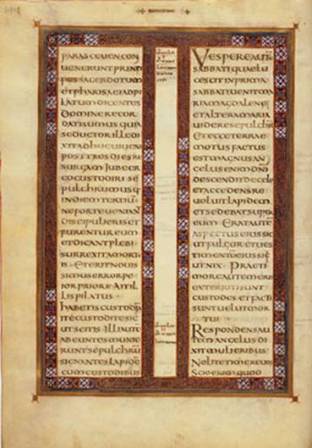 PARASCEUEN CON
UENERUNT PRINCI
PES SACERDOTUM
ET PHARISAEI AD PI
LATUM DICENTES
DOMINE RECOR
DATI SUMUS QUIA
SEDUCTOR ILLE DI
XIT ADHUC UIUENS
POST TRES DIES RE
SURGAM IUBE ER
GO CUSTODIRI SE
PULCHRUM USQ
IN DIEM TERTIU
NE FORTE UENIANT
DISCIPULI EIUS ET
FURENTUR EUM
ET DICANT PLEBI
SURREXIT A MORTU
IS ET ERIT NOUIS
SIMUS ERROR PE
IOR PRIORE AIT IL
LIS PILATUS
HABETIS CUSTODI
ITE CUSTODITE SIC
UT SCITIS ILLI AUTE
ABEUNTES MUNIE
RUNT SEPULCHRU
SIGNANTES LAPIDE
CUM CUSTODIBUS
VESPERE AUTEM
SABBATI QUAE LU
CESCIT IN PRIMA
SABBATI UENIT MA
RIA MAGDALENE
ET ALTERA MARIA
UIDERE SEPULCHRU
ET ECCE TERRAE
MOTUS FACTUS
EST MAGNUS AN
GELUS ENIM DNI
DESCENDIT DE CAELO
ET ACCEDENS RE
UOLUIT LAPIDEM
ET SEDEBAT SUPER
EUM ERAT AUTE
ASPECTUS EIUS SIC
UT FULGUR ET UES
TIMENTUM EIUS SIC
UT NIX PRAE TI
MORE AUTEM EIUS
EXTERRITI SUNT
CUSTODES ET FACTI
SUNT UELUT MOR
TUI
RESPONDENS AU
TEM ANGELUS DI
XIT MULIERIBUS
NOLITE TIMERE UOS
SCIO ENIM QUOD